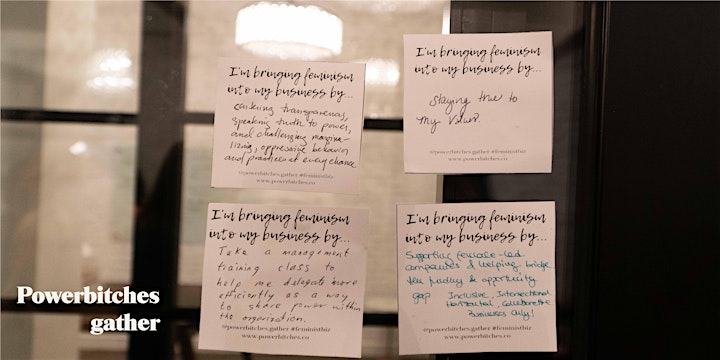 I'm bringing feminism
into my business by...
transparency,
speaking truth to power,
and challenging margina-
lizing, oppressive behavior
and practices at every chance
@powerbitches.gather #feministbiz
www.powerbitches.co
I'm bringing feminism
into my business by...
Staying true to
my values.
@powerbitches.gather #feministbiz
www.powerbitches.co
I'm bringing feminism
into my business by...
Take a management
training class to
help me delegate more
efficiently as a way
to share power within
the organization.
@powerbitches.gather #feministbiz
www.powerbitches.co
I'm bringing feminism
into my business by...
Supporting female-led
companies & helping bridge
the funding & opportunity
gap Inclusive, Intersectional
Horizontal, Collaborative
Businesses Only!
@powerbitches.gather #feministbiz
www.powerbitches.co
Powerbitches
gather